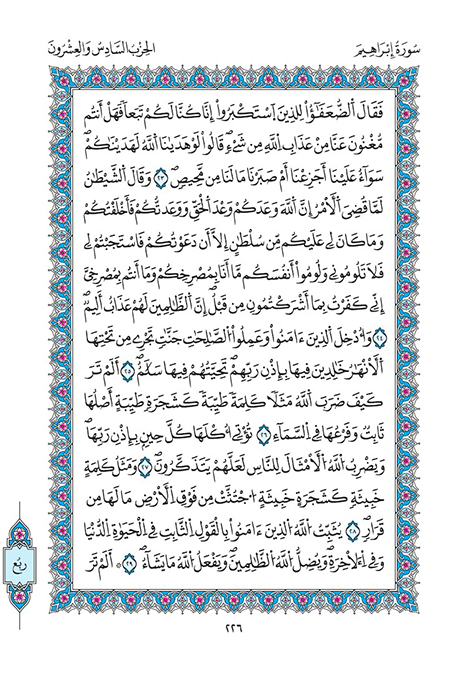 سُورَةُ إِبْرَاهِيمَ
الحِزْبُ السَّادِسُ وَالعِشْرُونَ
فَقَالَ اَ۬لضُّعَفَٰٓؤُاْ لِلذِينَ اَ۪سْتَكْبَرُوٓاْ إِنَّا كُنَّا لَكُمْ تَبَعاٗ فَهَلْ أَنتُم
مُّغْنُونَ عَنَّا مِنْ عَذَابِ اِ۬للَّهِ مِن شَےْءٖۖ قَالُواْ لَوْ هَدَيٰنَا اَ۬للَّهُ لَهَدَيْنَٰكُمْۖ
سَوَآءٌ عَلَيْنَآ أَجَزِعْنَآ أَمْ صَبَرْنَا مَا لَنَا مِن مَّحِيصٖۖ ٢٣ وَقَالَ اَ۬لشَّيْطَٰنُ
لَمَّا قُضِيَ اَ۬لْأَمْرُ إِنَّ اَ۬للَّهَ وَعَدَكُمْ وَعْدَ اَ۬لْحَقِّ وَوَعَدتُّكُمْ فَأَخْلَفْتُكُمْۖ
وَمَا كَانَ لِي عَلَيْكُم مِّن سُلْطَٰنٍ إِلَّآ أَن دَعَوْتُكُمْ فَاسْتَجَبْتُمْ لِي
فَلَا تَلُومُونِي وَلُومُوٓاْ أَنفُسَكُم مَّآ أَنَا بِمُصْرِخِكُمْ وَمَآ أَنتُم بِمُصْرِخِيَّ
إِنِّي كَفَرْتُ بِمَآ أَشْرَكْتُمُونِ مِن قَبْلُۖ إِنَّ اَ۬لظَّٰلِمِينَ لَهُمْ عَذَابٌ أَلِيمٞۖ
٢٤ وَأُدْخِلَ اَ۬لذِينَ ءَامَنُواْ وَعَمِلُواْ اُ۬لصَّٰلِحَٰتِ جَنَّٰتٖ تَجْرِے مِن تَحْتِهَا
اَ۬لْأَنْهَٰرُ خَٰلِدِينَ فِيهَا بِإِذْنِ رَبِّهِمْۖ تَحِيَّتُهُمْ فِيهَا سَلَٰمٌۖ ٢٥ أَلَمْ تَرَ
كَيْفَ ضَرَبَ اَ۬للَّهُ مَثَلاٗ كَلِمَةٗ طَيِّبَةٗ كَشَجَرَةٖ طَيِّبَةٍ أَصْلُهَا
ثَابِتٞ وَفَرْعُهَا فِي اِ۬لسَّمَآءِۖ ٢٦ تُؤْتِي أُكْلَهَا كُلَّ حِينِۢ بِإِذْنِ رَبِّهَاۖ
وَيَضْرِبُ اُ۬للَّهُ اُ۬لْأَمْثَالَ لِلنَّاسِ لَعَلَّهُمْ يَتَذَكَّرُونَۖ ٢٧ وَمَثَلُ كَلِمَةٍ
خَبِيثَةٖ كَشَجَرَةٍ خَبِيثَةٍ اُ۟جْتُثَّتْ مِن فَوْقِ اِ۬لْأَرْضِ مَا لَهَا مِن
قَرَارٖۖ ٢٨ يُثَبِّتُ اُ۬للَّهُ اُ۬لذِينَ ءَامَنُواْ بِالْقَوْلِ اِ۬لثَّابِتِ فِي اِ۬لْحَيَوٰةِ اِ۬لدُّنْيَا
وَفِي اِ۬لْأٓخِرَةِۖ وَيُضِلُّ اُ۬للَّهُ اُ۬لظَّٰلِمِينَۖ وَيَفْعَلُ اُ۬للَّهُ مَا يَشَآءُۖ ٢٩ ۞ أَلَمْ تَرَ
رُبُع
٢٢٦